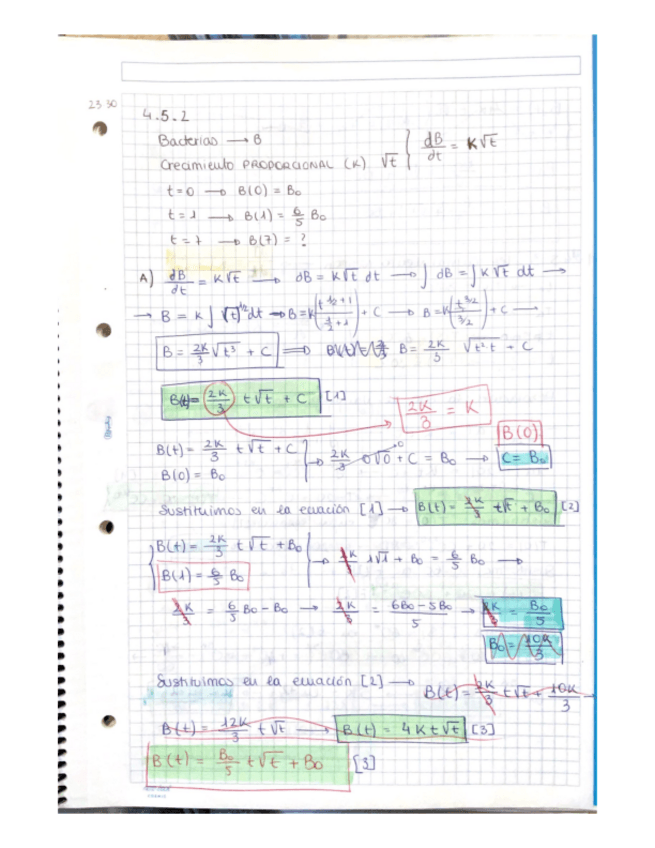 23:30
4.5.2
Bacterias → B
Crecimiento PROPORCIONAL (K) √t } dB/dt = K√t
t=0 → B(0) = B₀
t=1 → B(1) = 6/5 B₀
t=7 → B(7) = ?
A) dB/dt = K√t → dB = K√t dt → ∫ dB = ∫ K√t dt →
→ B = K ∫ (t)^1/2 dt → B = K (t^(1/2+1) / (1/2+1)) + C → B = K (t^3/2 / 3/2) + C →
B = 2K/3 √t³ + C ⇒ B = 2K/3 √t²t + C
B(t) = 2K/3 t√t + C [1]
2K/3 = K
B(t) = 2K/3 t√t + C
B(0) = B₀
} → 2K/3 0√0 + C = B₀ → C = B₀
B(0)
Sustituimos en la ecuación [1] → B(t) = 2K/3 t√t + B₀ [2]
B(t) = 2K/3 t√t + B₀
B(1) = 6/5 B₀
} → 2K/3 1√1 + B₀ = 6/5 B₀ →
2K/3 = 6/5 B₀ - B₀ → 2K/3 = 6B₀ - 5B₀ / 5 → 2K/3 = B₀/5
B₀ = 10K/3
Sustituimos en la ecuación [2] → B(t) = 2K/3 t√t + 10K/3
B(t) = 12K/3 t√t → B(t) = 4K t√t [3]
B(t) = B₀/5 t√t + B₀ [3]